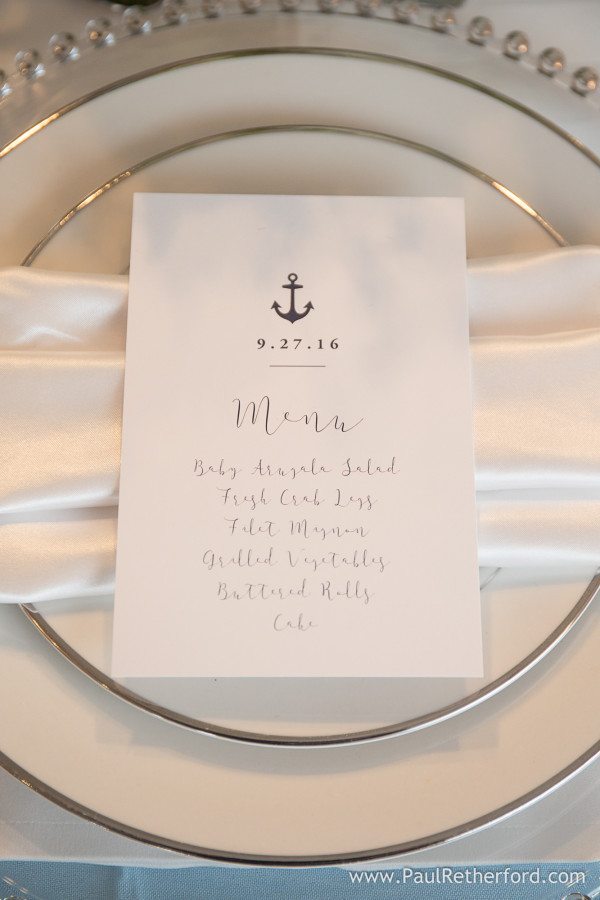 9.27.16
Menu
Baby Arugala Salad
Fresh Crab Legs
Filet Mignon
Grilled Vegetables
Buttered Rolls
Cake
www.PaulRetherford.com